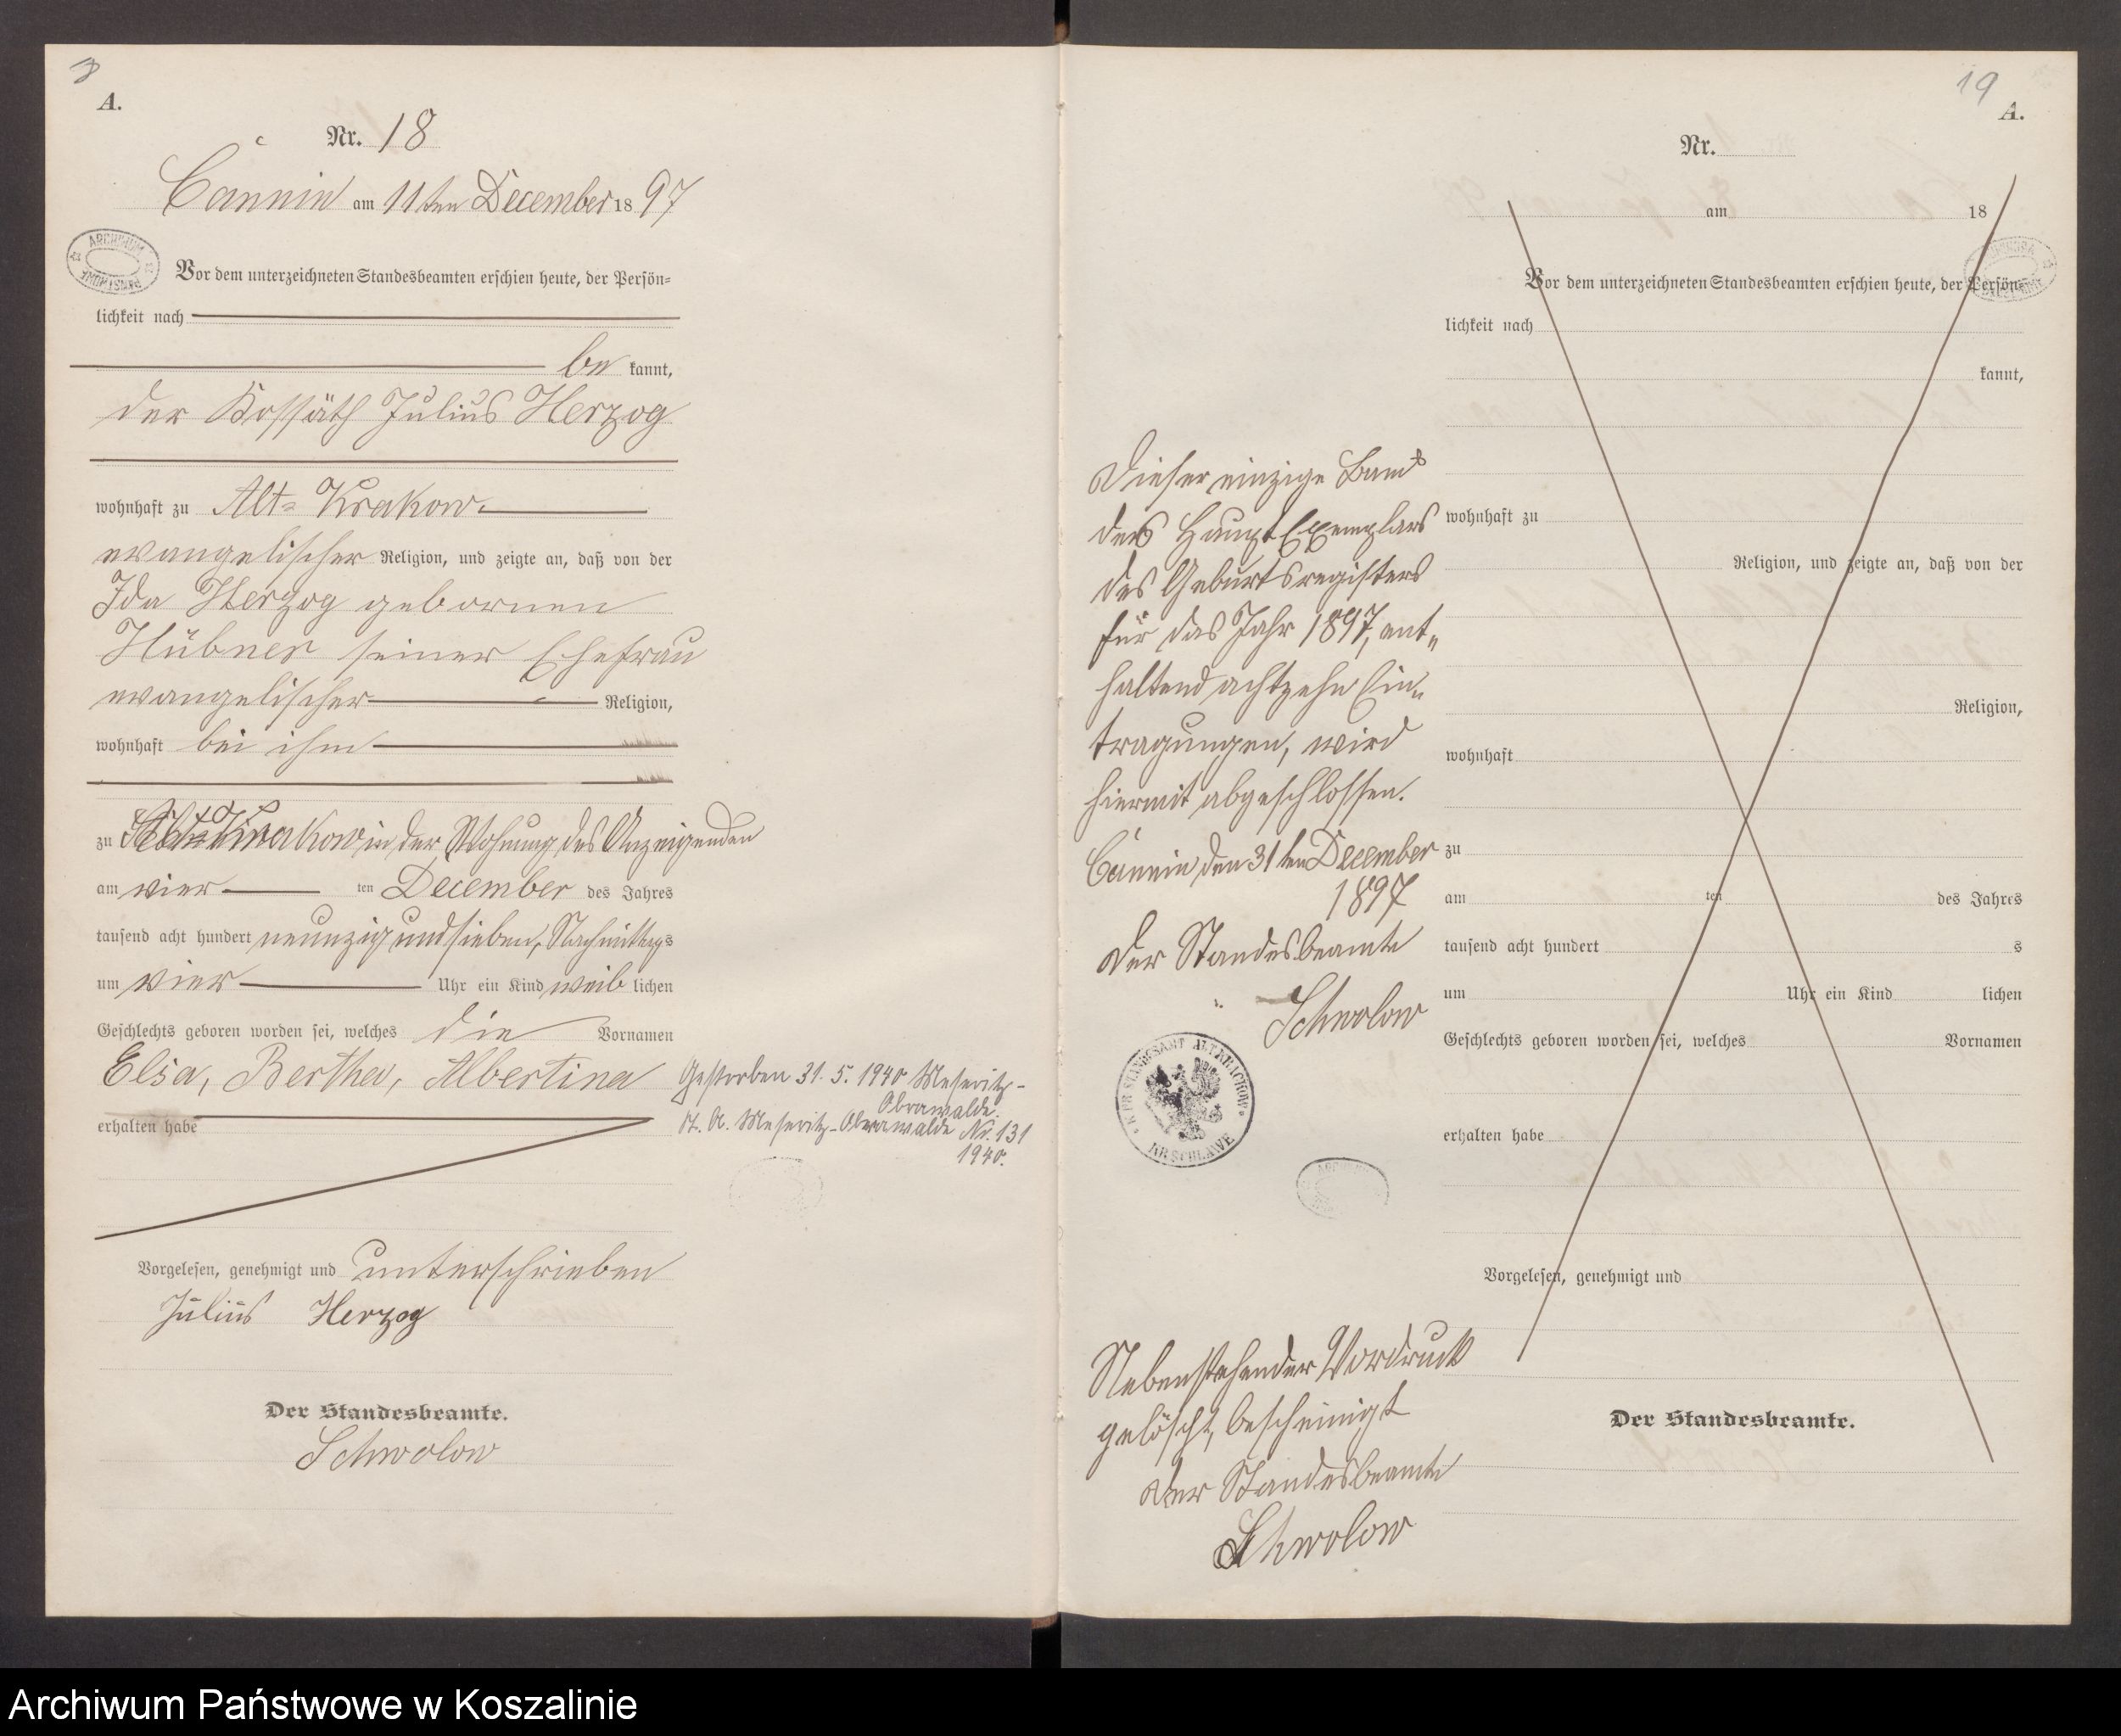 A.
Nr. 18
Cannin am 11ten December 1897
ARCHIWUM PAŃSTWOWE
Vor dem unterzeichneten Standesbeamten erschien heute, der Persön=
lichkeit nach
be kannt,
der Kossäth Julius Herzog
wohnhaft zu Alt= Krakow
evangelischer Religion, und zeigte an, daß von der
Ida Herzog gebornen
Hübner seiner Ehefrau
evangelischer Religion,
wohnhaft bei ihm
zu Alt= Krakow in der Wohnung des Anzeigenden
am vier ten December des Jahres
tausend acht hundert neunzig und sieben, Nachmittags
um vier Uhr ein Kind weib lichen
Geschlechts geboren worden sei, welches die Vornamen
Elsa, Bertha, Albertina
erhalten habe
Gestorben 31. 5. 1940 Meseritz-
Obrawalde.
St. A. Meseritz-Obrawalde Nr. 131
1940.
Vorgelesen, genehmigt und unterschrieben
Julius Herzog
Der Standesbeamte.
Schwolow
19
A.
Nr.
am 18
Vor dem unterzeichneten Standesbeamten erschien heute, der Persön=
lichkeit nach
kannt,
wohnhaft zu
Religion, und zeigte an, daß von der
Religion,
wohnhaft
zu
am ten des Jahres
tausend acht hundert s
um Uhr ein Kind lichen
Geschlechts geboren worden sei, welches Vornamen
erhalten habe
Vorgelesen, genehmigt und
Der Standesbeamte.
Dieser einzige Band
des Haupt Exemplars
des Geburtsregisters
für das Jahr 1897, ent„
haltend achtzehn Ein„
tragungen, wird
hiermit abgeschlossen.
Cannin den 31ten December
1897
Der Standesbeamte
Schwolow
K. PR. STANDESAMT ALTKRACKOW
KR. SCHLAWE
Nebenstehender Vordruck
gelöscht, bescheinigt
Der Standesbeamte
Schwolow
Archiwum Państwowe w Koszalinie